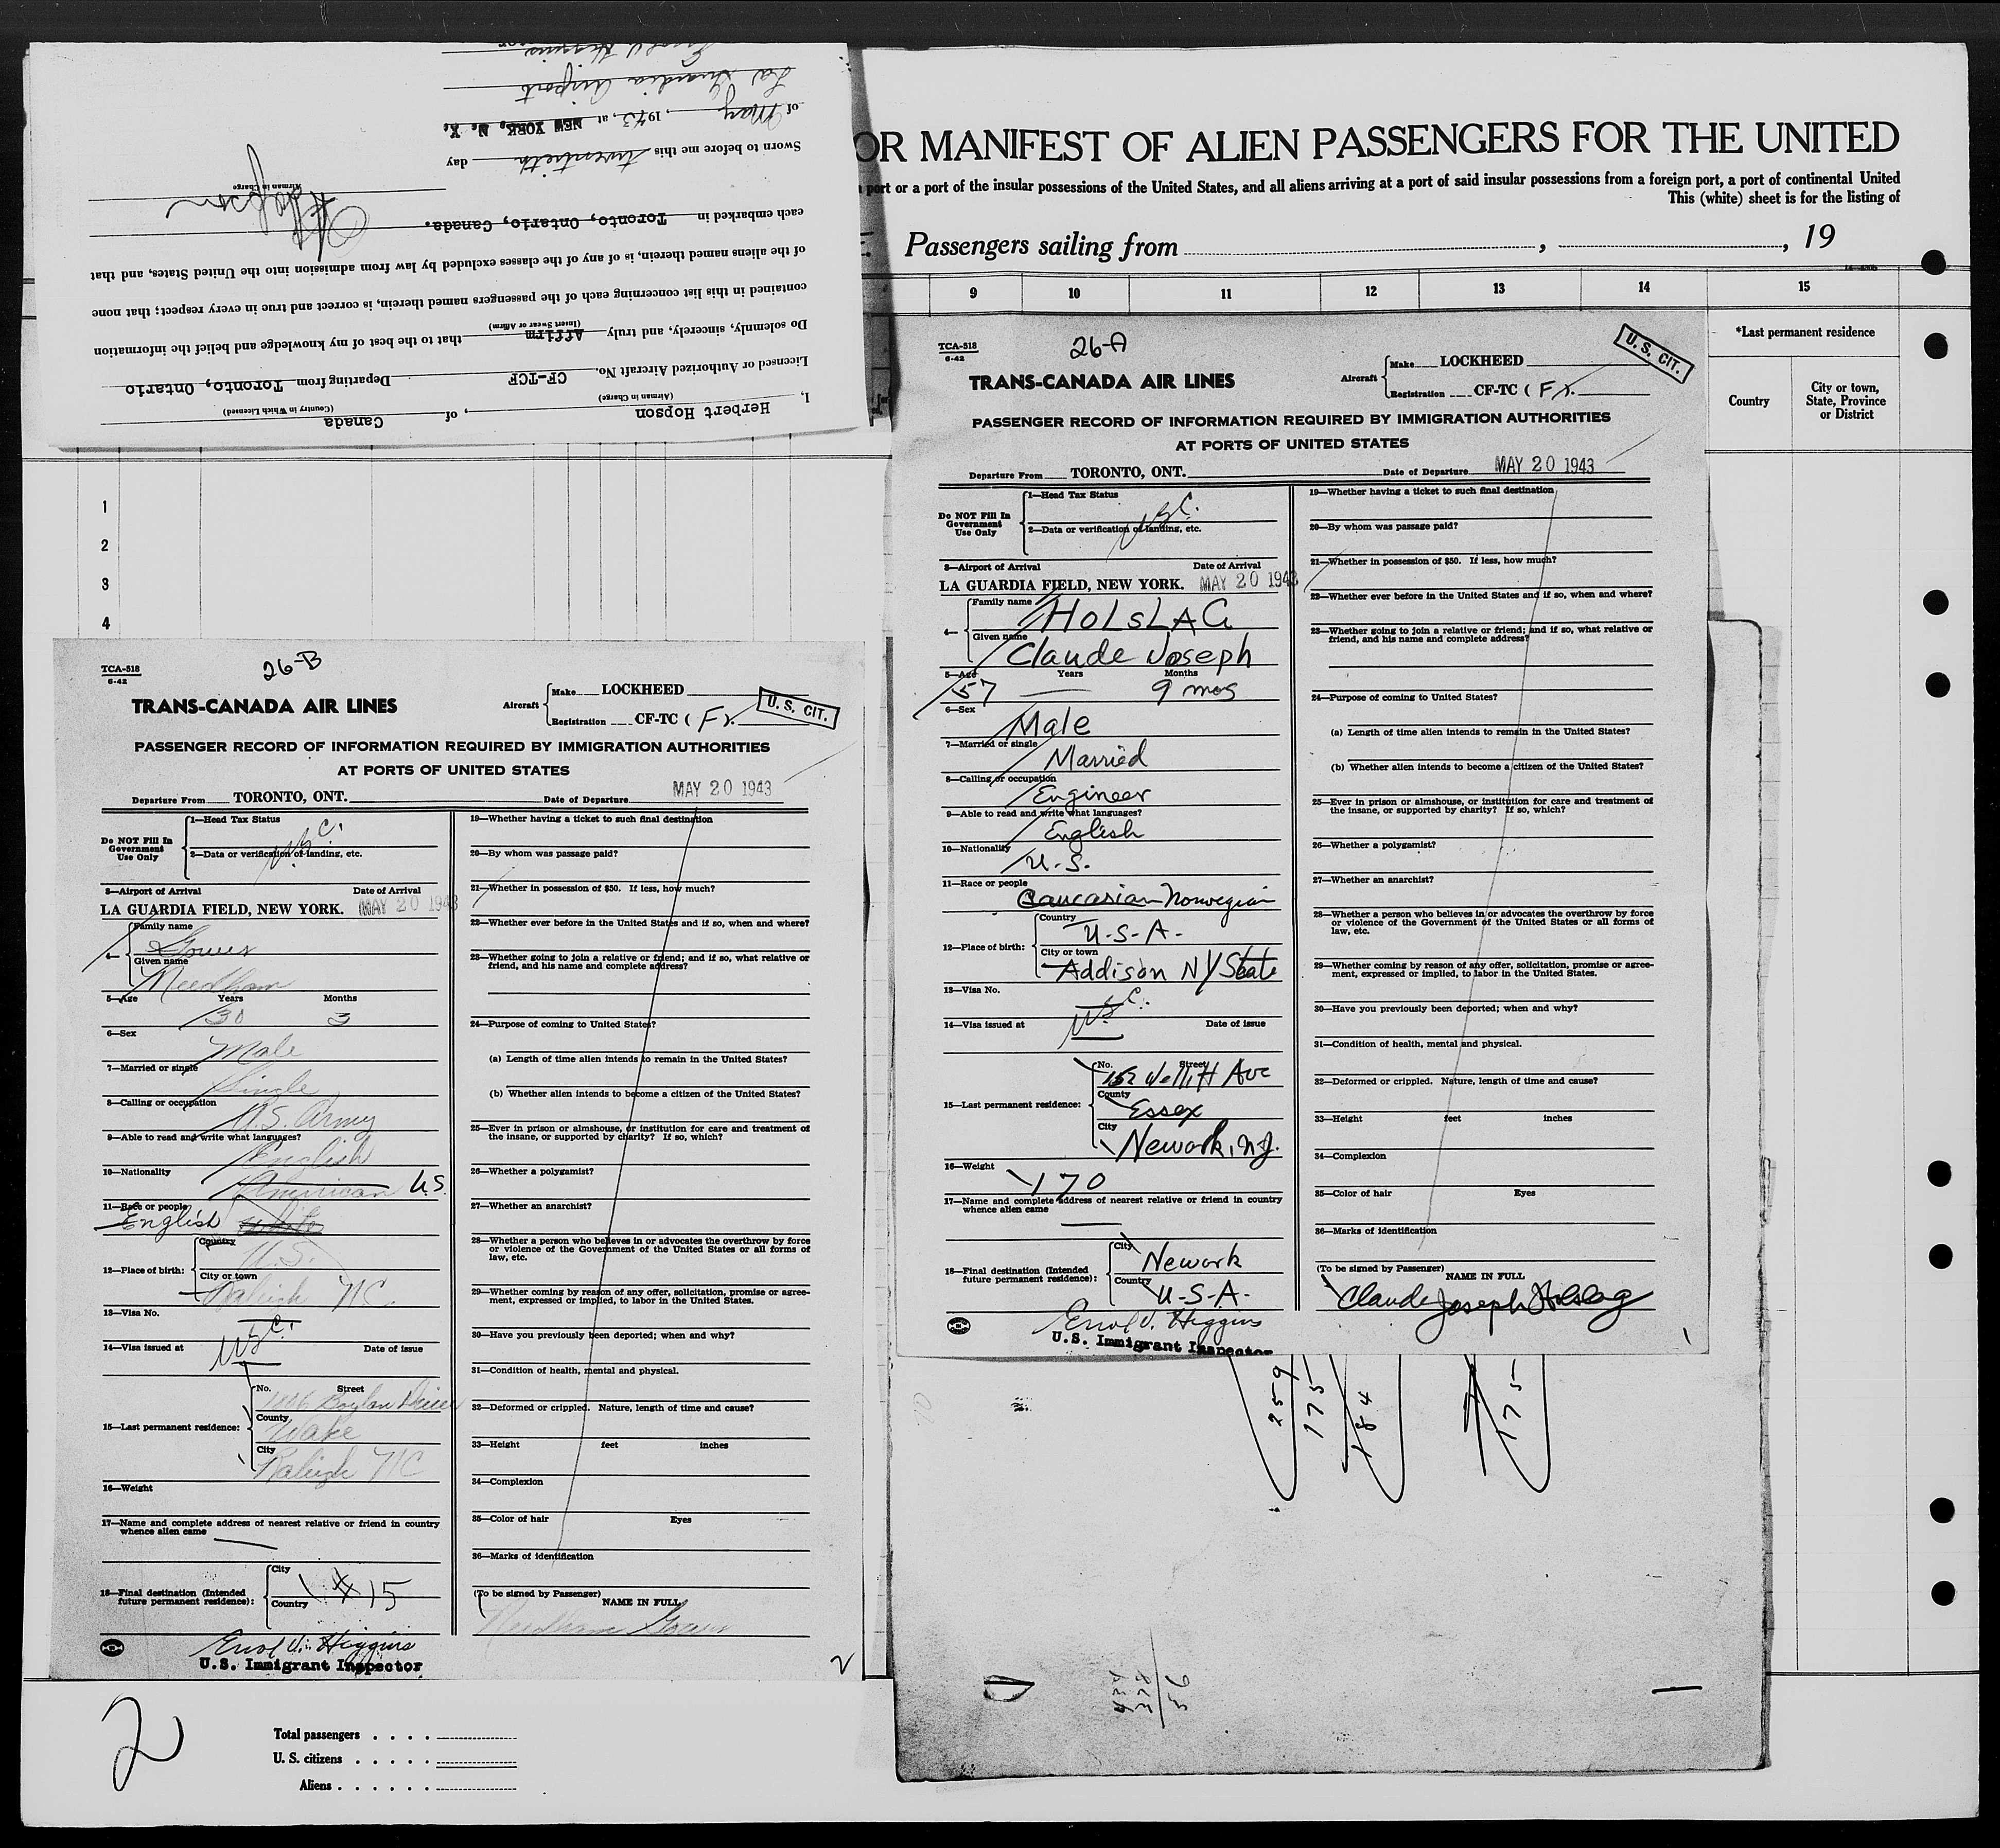 I, Herbert Hopson, of Canada
(Airman in Charge) (Country in Which Licensed)
Licensed or Authorized Aircraft No. CF-TCF Departing from Toronto, Ontario
Do solemnly, sincerely, and truly Affirm that to the best of my knowledge and belief the information
(Insert Swear or Affirm)
contained in this list concerning each of the passengers named therein, is correct and true in every respect; that none
of the aliens named therein, is of any of the classes excluded by law from admission into the United States, and that
each embarked in Toronto, Ontario, Canada.
Hopson
Airman in Charge
Sworn to before me this twentieth day
of May, 1943, at NEW YORK, N. Y.
La Guardia Airport
Errol V. Higgins
OR MANIFEST OF ALIEN PASSENGERS FOR THE UNITED
port or a port of the insular possessions of the United States, and all aliens arriving at a port of said insular possessions from a foreign port, a port of continental United
This (white) sheet is for the listing of
Passengers sailing from , , 19
9 10 11 12 13 14 15
*Last permanent residence
Country
City or town,
State, Province
or District
1
2
3
4
TCA-518
6-42
26-B
TRANS-CANADA AIR LINES
Aircraft
Make LOCKHEED
Registration CF-TC (F).
U. S. CIT.
PASSENGER RECORD OF INFORMATION REQUIRED BY IMMIGRATION AUTHORITIES
AT PORTS OF UNITED STATES
Departure From TORONTO, ONT. Date of Departure MAY 20 1943
Do NOT Fill In
Government
Use Only
1—Head Tax Status
2—Data or verification of landing, etc.
USC.
3—Airport of Arrival Date of Arrival
LA GUARDIA FIELD, NEW YORK. MAY 20 1943
4—
Family name
Gower
Given name
Needham
5—Age Years Months
30 3
6—Sex
Male
7—Married or single
Single
8—Calling or occupation
U.S. Army
9—Able to read and write what languages?
English
10—Nationality
American U.S.
11—Race or people
English White
12—Place of birth:
Country
U.S.
City or town
Raleigh NC.
13—Visa No.
USC.
14—Visa issued at Date of issue
15—Last permanent residence:
No. Street
Boylan Drive
County
Wake
City
Raleigh NC
16—Weight
17—Name and complete address of nearest relative or friend in country
whence alien came
18—Final destination (Intended
future permanent residence):
City
Country
# 15
Errol V. Higgins
U.S. Immigrant Inspector
19—Whether having a ticket to such final destination
20—By whom was passage paid?
21—Whether in possession of $50. If less, how much?
22—Whether ever before in the United States and if so, when and where?
23—Whether going to join a relative or friend; and if so, what relative or
friend, and his name and complete address?
24—Purpose of coming to United States?
(a) Length of time alien intends to remain in the United States?
(b) Whether alien intends to become a citizen of the United States?
25—Ever in prison or almshouse, or institution for care and treatment of
the insane, or supported by charity? If so, which?
26—Whether a polygamist?
27—Whether an anarchist?
28—Whether a person who believes in or advocates the overthrow by force
or violence of the Government of the United States or all forms of
law, etc.
29—Whether coming by reason of any offer, solicitation, promise or agree-
ment, expressed or implied, to labor in the United States.
30—Have you previously been deported; when and why?
31—Condition of health, mental and physical.
32—Deformed or crippled. Nature, length of time and cause?
33—Height feet inches
34—Complexion
35—Color of hair Eyes
36—Marks of identification
(To be signed by Passenger)
NAME IN FULL
Needham Gower
2
TCA-518
6-42
26-A
TRANS-CANADA AIR LINES
Aircraft
Make LOCKHEED
Registration CF-TC (F).
U. S. CIT.
PASSENGER RECORD OF INFORMATION REQUIRED BY IMMIGRATION AUTHORITIES
AT PORTS OF UNITED STATES
Departure From TORONTO, ONT. Date of Departure MAY 20 1943
Do NOT Fill In
Government
Use Only
1—Head Tax Status
2—Data or verification of landing, etc.
USC.
3—Airport of Arrival Date of Arrival
LA GUARDIA FIELD, NEW YORK. MAY 20 1943
4—
Family name
HOLSLAG
Given name
Claude Joseph
5—Age Years Months
57 9 mos
6—Sex
Male
7—Married or single
Married
8—Calling or occupation
Engineer
9—Able to read and write what languages?
English
10—Nationality
U.S.
11—Race or people
Caucasian Norwegian
12—Place of birth:
Country
U-S-A-
City or town
Addison NY State
13—Visa No.
USC.
14—Visa issued at Date of issue
15—Last permanent residence:
No. Street
152 Ave
County
Essex
City
Newark, N.J.
16—Weight
170
17—Name and complete address of nearest relative or friend in country
whence alien came
18—Final destination (Intended
future permanent residence):
City
Newark
Country
U-S-A-
Errol V. Higgins
U.S. Immigrant Inspector
19—Whether having a ticket to such final destination
20—By whom was passage paid?
21—Whether in possession of $50. If less, how much?
22—Whether ever before in the United States and if so, when and where?
23—Whether going to join a relative or friend; and if so, what relative or
friend, and his name and complete address?
24—Purpose of coming to United States?
(a) Length of time alien intends to remain in the United States?
(b) Whether alien intends to become a citizen of the United States?
25—Ever in prison or almshouse, or institution for care and treatment of
the insane, or supported by charity? If so, which?
26—Whether a polygamist?
27—Whether an anarchist?
28—Whether a person who believes in or advocates the overthrow by force
or violence of the Government of the United States or all forms of
law, etc.
29—Whether coming by reason of any offer, solicitation, promise or agree-
ment, expressed or implied, to labor in the United States.
30—Have you previously been deported; when and why?
31—Condition of health, mental and physical.
32—Deformed or crippled. Nature, length of time and cause?
33—Height feet inches
34—Complexion
35—Color of hair Eyes
36—Marks of identification
(To be signed by Passenger)
NAME IN FULL
Claude Joseph Holslag
259
175
184
175
2
Total passengers
U. S. citizens
Aliens